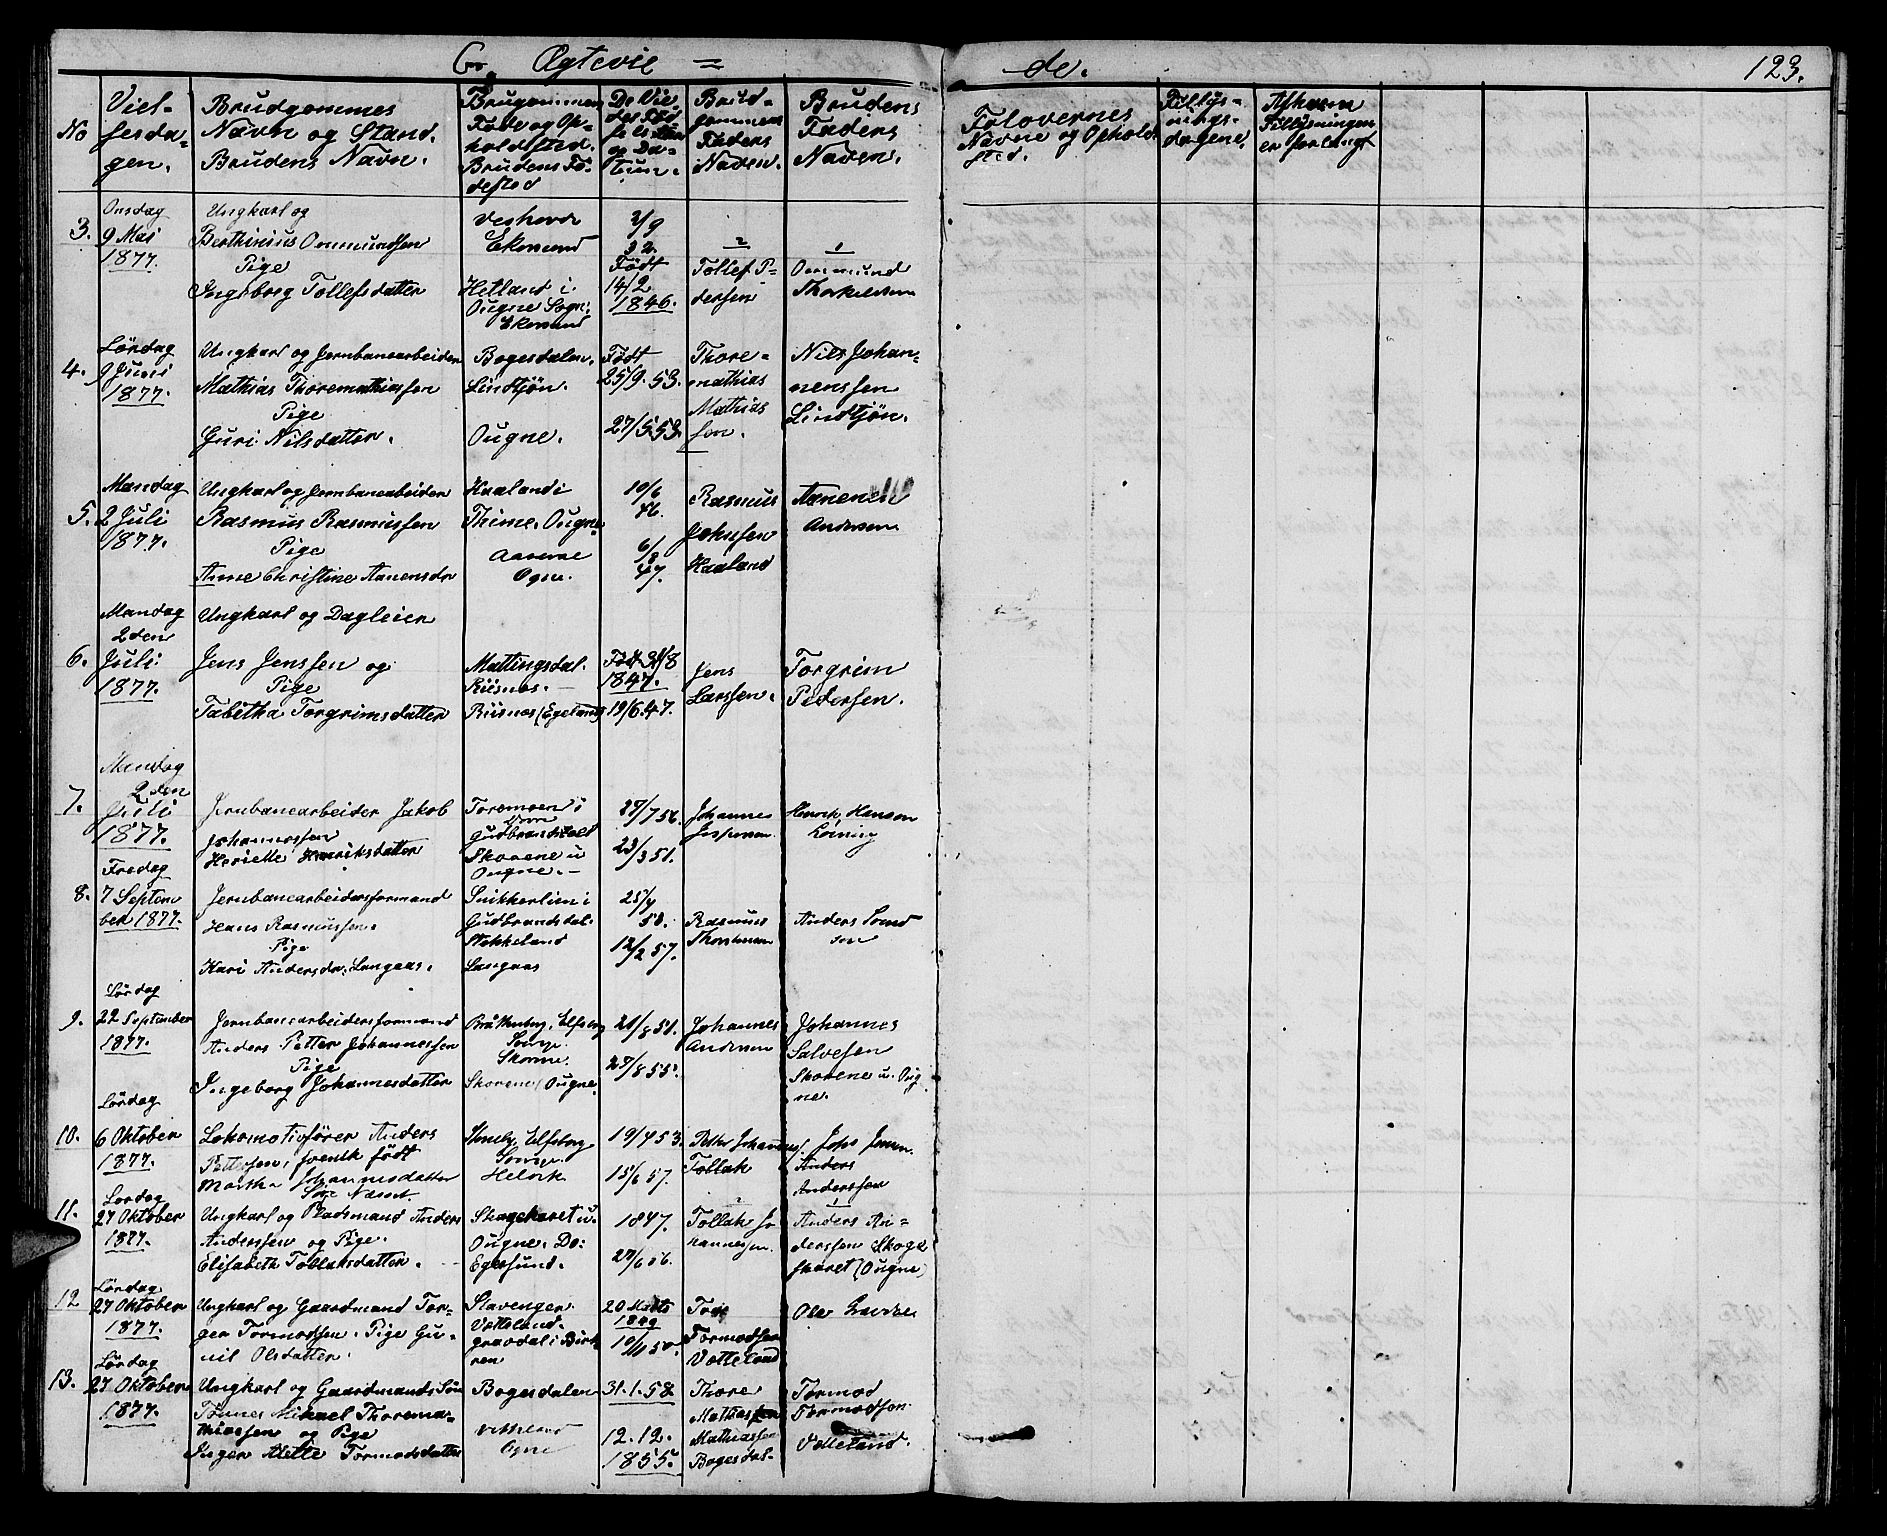 Ægtevie =
de.
123.
No
Viel-
sesda-
gen.
Brudgommes
Navn og Stand.
Brudens Navn.
Føde og Op-
holdssted.
Brudens Fø-
destod
De Vie-
og Da-
tum.
Brud-
gommens
Faders
Naven.
Brudens
Faders
Naven.
Navne og Opholds
sted.
Tillys-
nings-
dagene.
Tillysningen
er forlangt
3.
Onsdag
9 Mai
1877.
Ungkarl og
Berthinius Ommundsen
Pige
Ingeborg Tollefsdatter
Ekersund
Hetland i
Ougne Sogn
Ekersund
2/9
32.
Født
14/2
1846.
2
Tollef P-
dersen
1
Ommund
Thorkildsen
4.
Lørdag
9 Juni
1877.
Ungkarl og Jernbanearbeider
Mathias Thoremathiassen
Pige
Guri Nilsdatter.
Bogesdalen.
Lindtjøn.
Ougne.
Født
25/9.53.
27/5.53.
Thore-
mathias
Mathias
sen.
Nils Johan-
nenssen
Lindtjøn.
5.
Mandag
2 Juli
1877.
Ungkarl og Jernbanearbeider
Rasmus Rasmussen
Pige
Anne Christine Aanensdr
Haaland i
Thime, Ougne
Ogne.
10/6
46.
6/8
47.
Rasmus
Johnsen
Haaland
Aanen
Andersen
6.
Mandag
2den
Juli
1877.
Ungkarl og Dagleier
Jens Jenssen og
Pige
Tabitha Torgrimsdatter
Mattingsdal.
Riisnes.
Riisnes (Egeland)
Født 31/8
1847.
19/6.47.
Jens
Larssen.
Torgrim
Pedersen.
7.
Mandag
2den
Juli
1877.
Jernbanearbeider Jakob
Johannessen
Heriette Henriksdatter
Toremoen i
Gudbrandsdal
Skorene u
Ougne.
27/7 56.
23/3 51.
Johannes
Jespersen
Henrik Hansen
8.
Fredag
7 Septem
ber 1877.
Jernbanearbeidersformand
Hans Rasmussen.
Pige
Kari Andersdr. Langaas.
Snikkerlien i
Gudbrandsdal.
Stokkeland
Langaas
25/4
50.
12/2 57.
Rasmus
Thorstensen
Anders
9.
Lørdag
22 September
1877.
Jernbanearbeidersformand
Anders Petter Johannessen
Pige
Ingeborg Johannesdatter
Elfsborg
Skorene
Skorene (Ougne
21/8 51.
27/8 55.
Johannes
Andersen
Johannes
Salvesen
Skorene u. Oug
ne.
10.
Lørdag
6 Oktober
1877.
Lokomotivfører Anders
Pettersen, svensk født
Martha Johannesdatter
Elfsborg
Helvik
19/4 53.
15/6 57.
Petter Johannes.
11.
Lørdag
27 Oktober
1877.
Ungkarl og Pladsmand Anders
Anderssen og Pige.
Elisabeth Tollaksdatter.
Skogskaret u.
Ougne. Do:
Egersund.
1847.
27/6 56.
2
Tollak Jo
hannesen.
Anders
Anderssen
1
Anders An-
derssen Skogs
skaret (Ougne)
12
Lørdag
27 Oktober
1877.
Ungkarl og Gaardmand Tor-
ger Tormodsen. Pige Gu-
nil Olsdatter.
Stavenger
Vatteland.
gravdal i Birk
ren
20 Marts
1849
Tormodsen
Votteland
Ole
13.
Lørdag
27 Oktober
1877.
Ungkarl og Gaardmands Søn
Tønnes Mikael Thorema-
thiassen og Pige
Inger Mette Tormodsdatter
Bogesdalen
Ogne
31.1.58
12.12.
1855.
Thore
Mathiassen
Mathiassen
Bogesdal.
Tormod
Tormodsen.
Votteland.